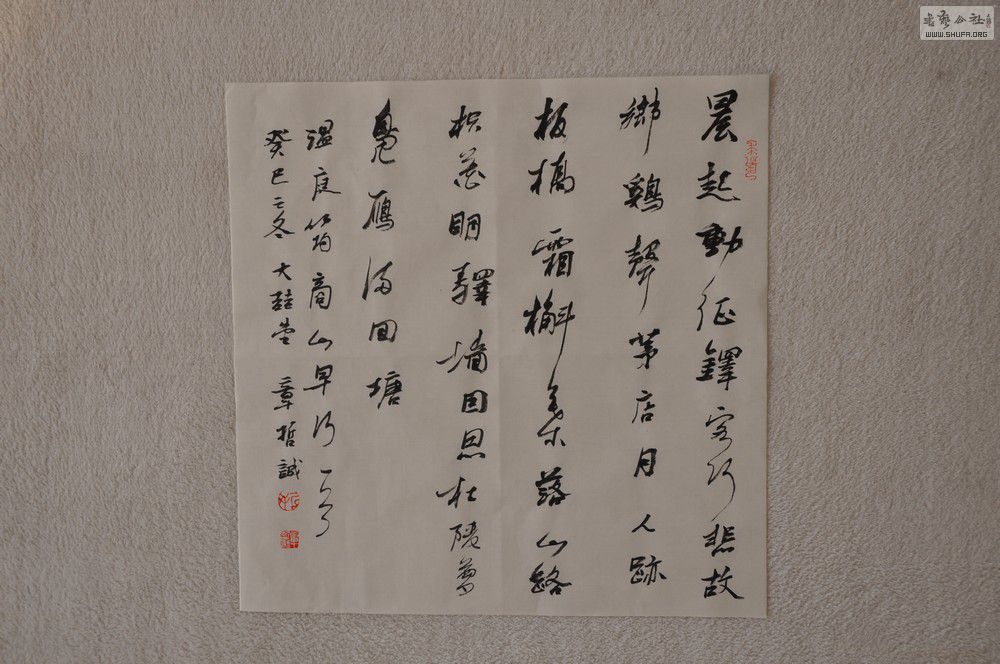 晨起動征鐸客行悲故
鄉鷄聲茅店月人跡
板橋霜槲葉落山路
枳花明驛墻因思杜陵夢
鳧鴈滿回塘
溫庭筠商山早行一首
癸巳之冬 大 堂 章哲誠
書藝公社
WWW.SHUFA.ORG